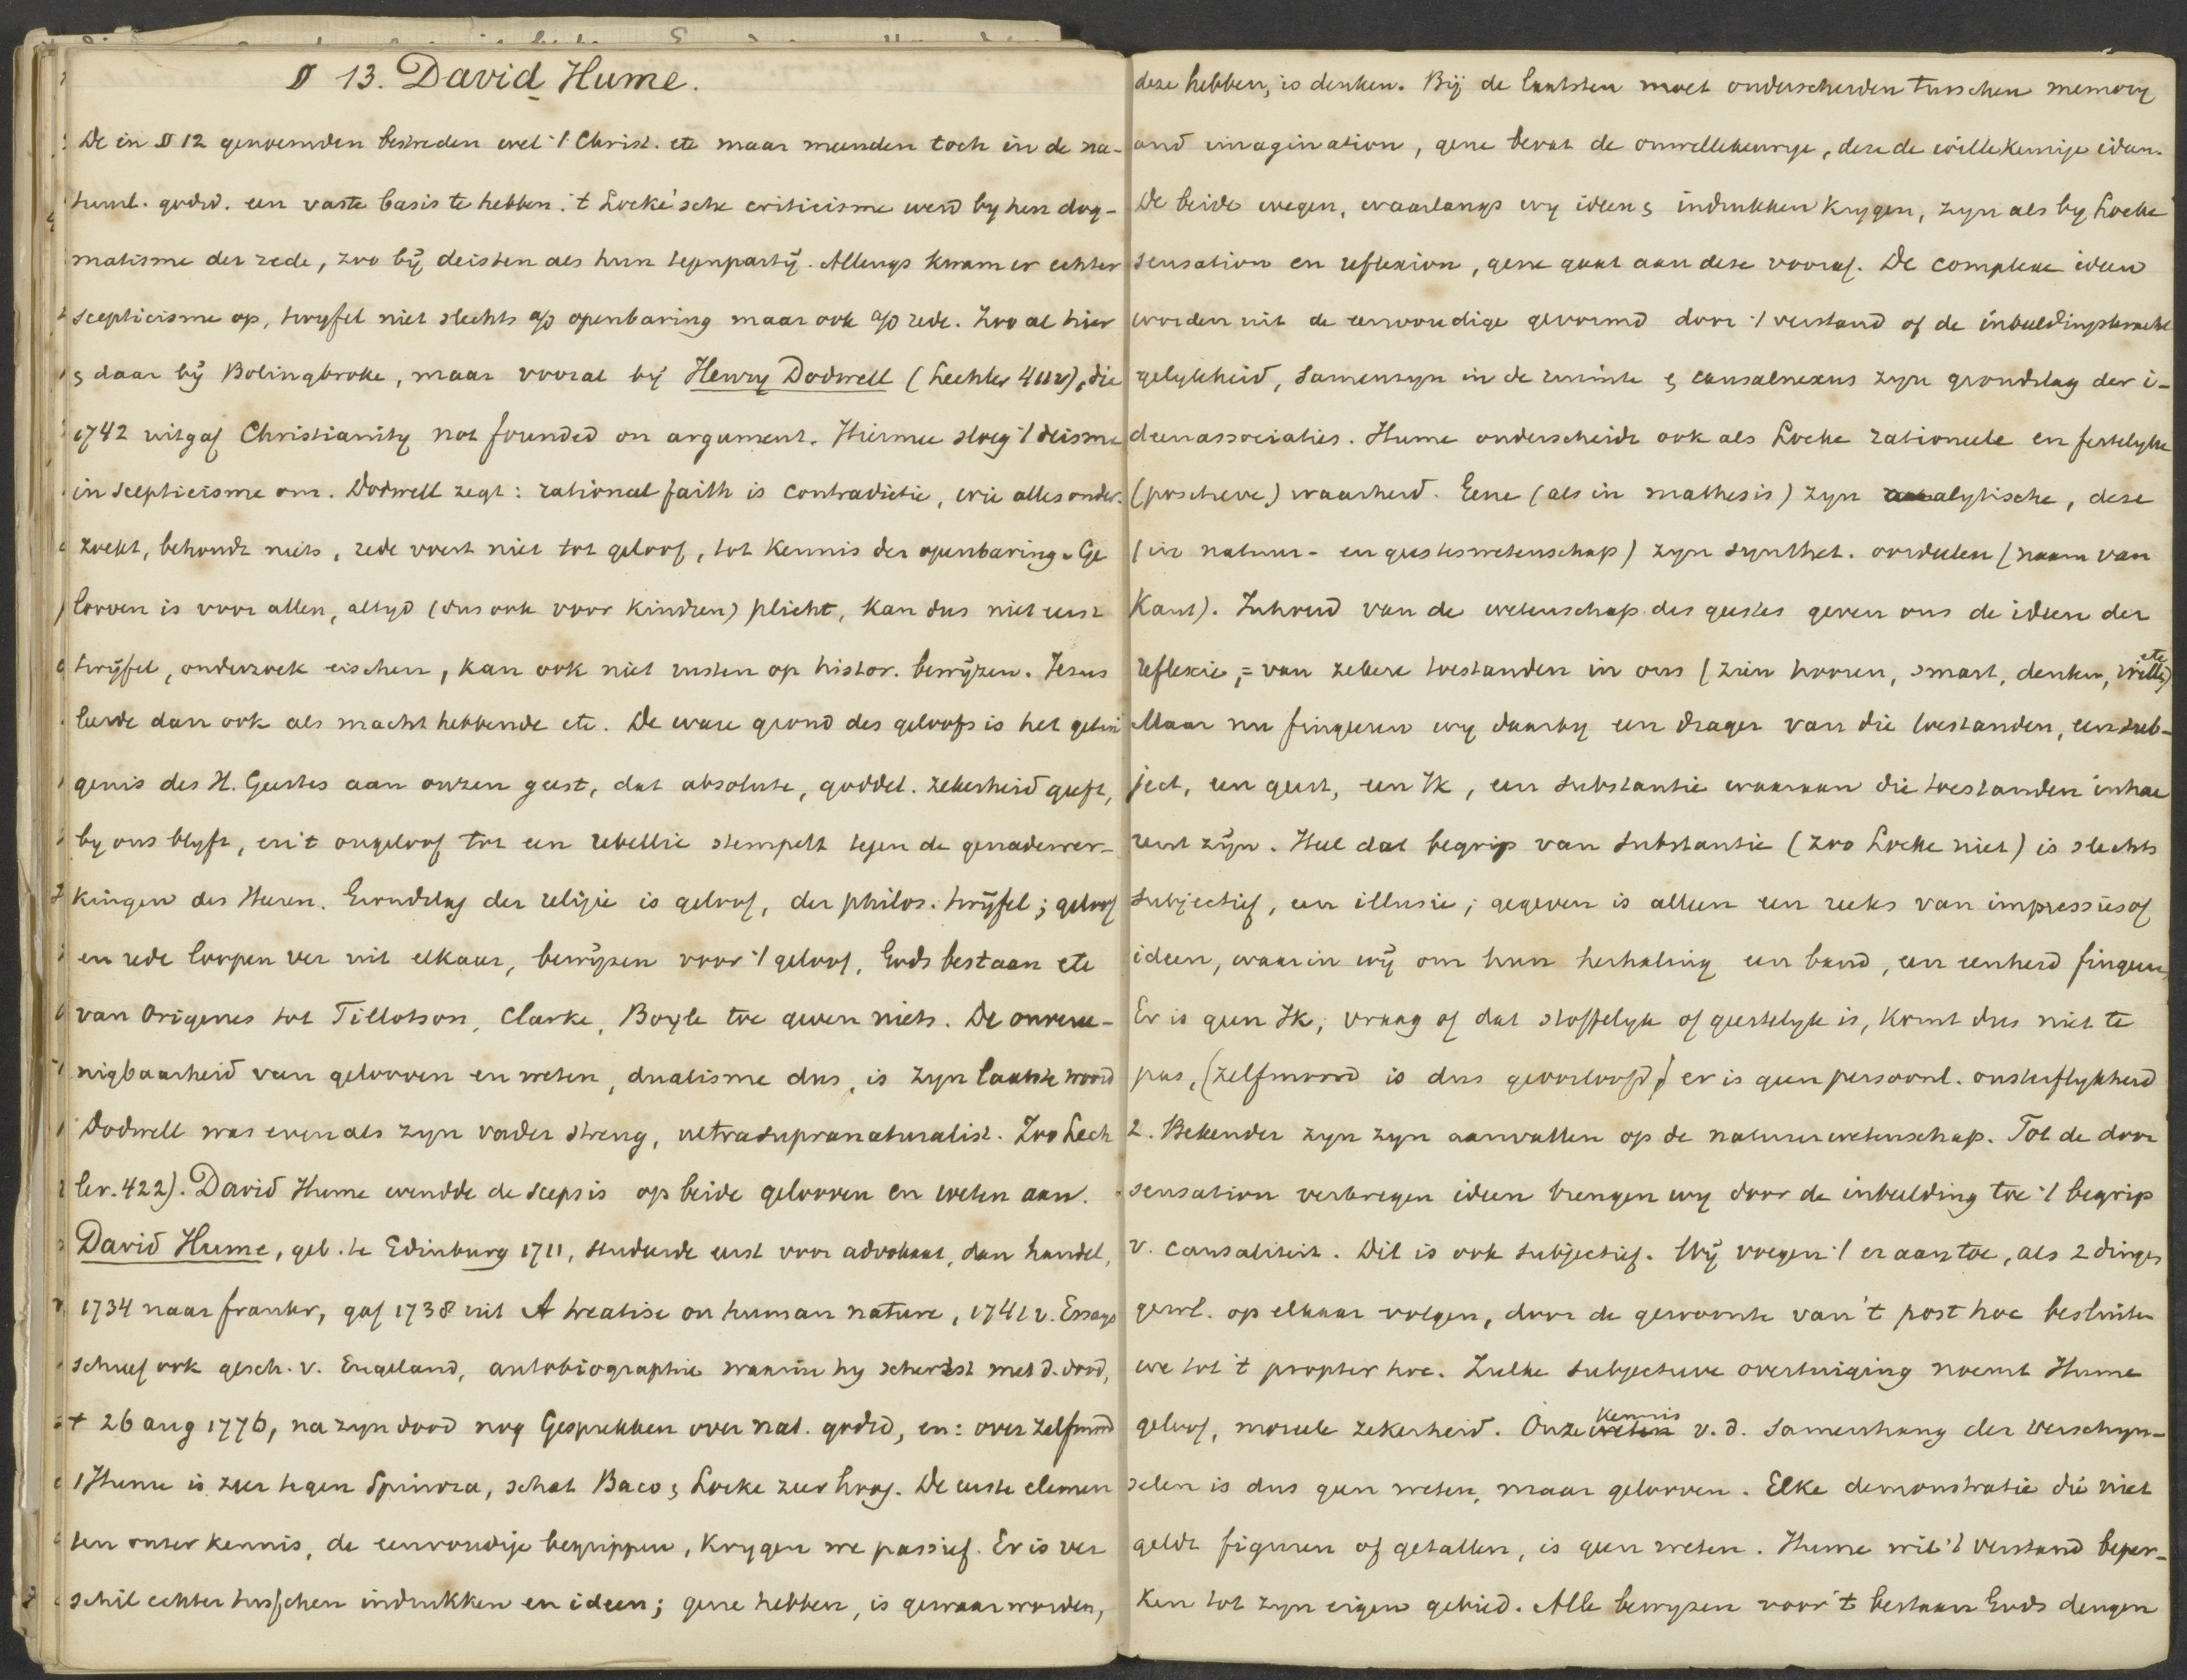 § 13. David Hume.
De in § 12 genoemden bestreden wel 't Christ. etc maar meenden toch in de na-
tuurl. godsd. een vaste basis te hebben. 't Locke'sche criticisme werd by hen dog-
matisme der rede, zoo bij deisten als hun tegenpartij. Allengs kwam er echter
scepticisme op, twyfel niet slechts a/o openbaring maar ook a/o rede. Zoo al hier
& daar bij Bolingbroke, maar vooral bij Henry Dodwell (Lechler 411v), die
1742 uitgaf Christianity not founded on argument. Hiermee sloeg 't deisme
in scepticisme om. Dodwell zegt: rational faith is contradictie, wie alles onder-
zoekt, behoudt niets, rede voert niet tot geloof, tot kennis der openbaring. Ge
looven is voor allen, altyd (dus ook voor kindren) plicht, kan dus niet eerst
twijfel, onderzoek eischen, kan ook niet rusten op histor. bewijzen. Jezus
leerde dan ook als macht hebbende etc. De ware grond des geloofs is het getui
genis des H. Geestes aan onzen geest, dat absolute, goddel. zekerheid geeft,
by ons blyft, en 't ongeloof tot een rebellie stempelt tegen de genadewer-
kingen des Heren. Grondslag der religie is geloof, der philos. twijfel; geloof
en rede loopen ver uit elkaar, bewijzen voor 't geloof, Gods bestaan etc
van Origenes tot Tillotson, Clarke, Boyle toe geven niets. De onvere-
nigbaarheid van gelooven en weten, dualisme dus, is zyn laatste woord
Dodwell was evenals zyn vader streng, ultrasupranaturalist. Zoo Lech
ler. 422). David Hume wendde de scepsis op beide gelooven en weten aan.
David Hume, geb. te Edinburg 1711, studeerde eerst voor advokaat, dan handel,
1734 naar frankr, gaf 1738 uit A treatise on human nature, 1741 v. Essays
schreef ook gesch. v. Engeland, autobiographie waarin hy schertst met d. dood,
† 26 aug 1776, na zyn dood nog Gesprekken over nat. godsd, en: over zelfmrd
1 Hume is zeer tegen Spinoza, schat Baco & Locke zeer hoog. De eerste elemen
ten onzer kennis, de eenvoudige begrippen, krygen we passief. Er is ver
schil echter tusschen indrukken en ideen; gene hebben, is gewaarworden,
deze hebben, is denken. Bij de laatsten moet onderscheiden tusschen memory
and imagination, gene bevat de onwillekeurige, deze de willekeurige ideen.
De beide wegen, waarlangs wy ideen & indrukken krygen, zyn als by Locke
sensation en reflexion, gene gaat aan deze vooraf. De complexe ideen
worden uit de eenvoudige gevormd door 't verstand of de inbeeldingskracht
gelykheid, samenzyn in de ruimte & causalnexus zyn grondslag der i-
deenassociaties. Hume onderscheidt ook als Locke rationeele en feitelyke
(positieve) waarheid. Gene (als in mathesis) zyn analytische, deze
(in natuur- en geesteswetenschap) zyn synthet. oordeelen (naam van
Kant). Inhoud van de wetenschap des geestes geven ons de ideen der
reflexie, = van zekere toestanden in ons (zien hooren, smart, denken, willen etc)
Maar nu fingeren wy daarby een drager van die toestanden, een sub-
ject, een geest, een Ik, een substantie waaraan die toestanden inhae
rent zijn. Heel dat begrip van substantie (zoo Locke niet) is slechts
subjectief, een illusie; gegeven is alleen een reeks van impressies of
ideen, waarin wij om hun herhaling een band, een eenheid fingeren
Er is geen Ik; vraag of dat stoffelyk of geestelyk is, komt dus niet te
pas, (zelfmoord is dus geoorloofd,) er is geen persoonl. onsterflykheid
2. Bekender zyn zyn aanvallen op de natuurwetenschap. Tot de door
sensation verkregen ideen brengen wy door de inbeelding toe 't begrip
v. causaliteit. Dit is ook subjectief. Wij voegen 't er aan toe, als 2 dingen
gewl. op elkaar volgen, door de gewoonte van 't post hoc besluiten
we tot 't propter hoc. Zulke subjectieve overtuiging noemt Hume
geloof, moreele zekerheid. Onze kennis v. d. samenhang der verschyn-
selen is dus geen weten, maar gelooven. Elke demonstratie die niet
geldt figuren of getallen, is geen weten. Hume wil 't verstand beper-
ken tot zyn eigen gebied. Alle bewyzen voor 't bestaan Gods deugen